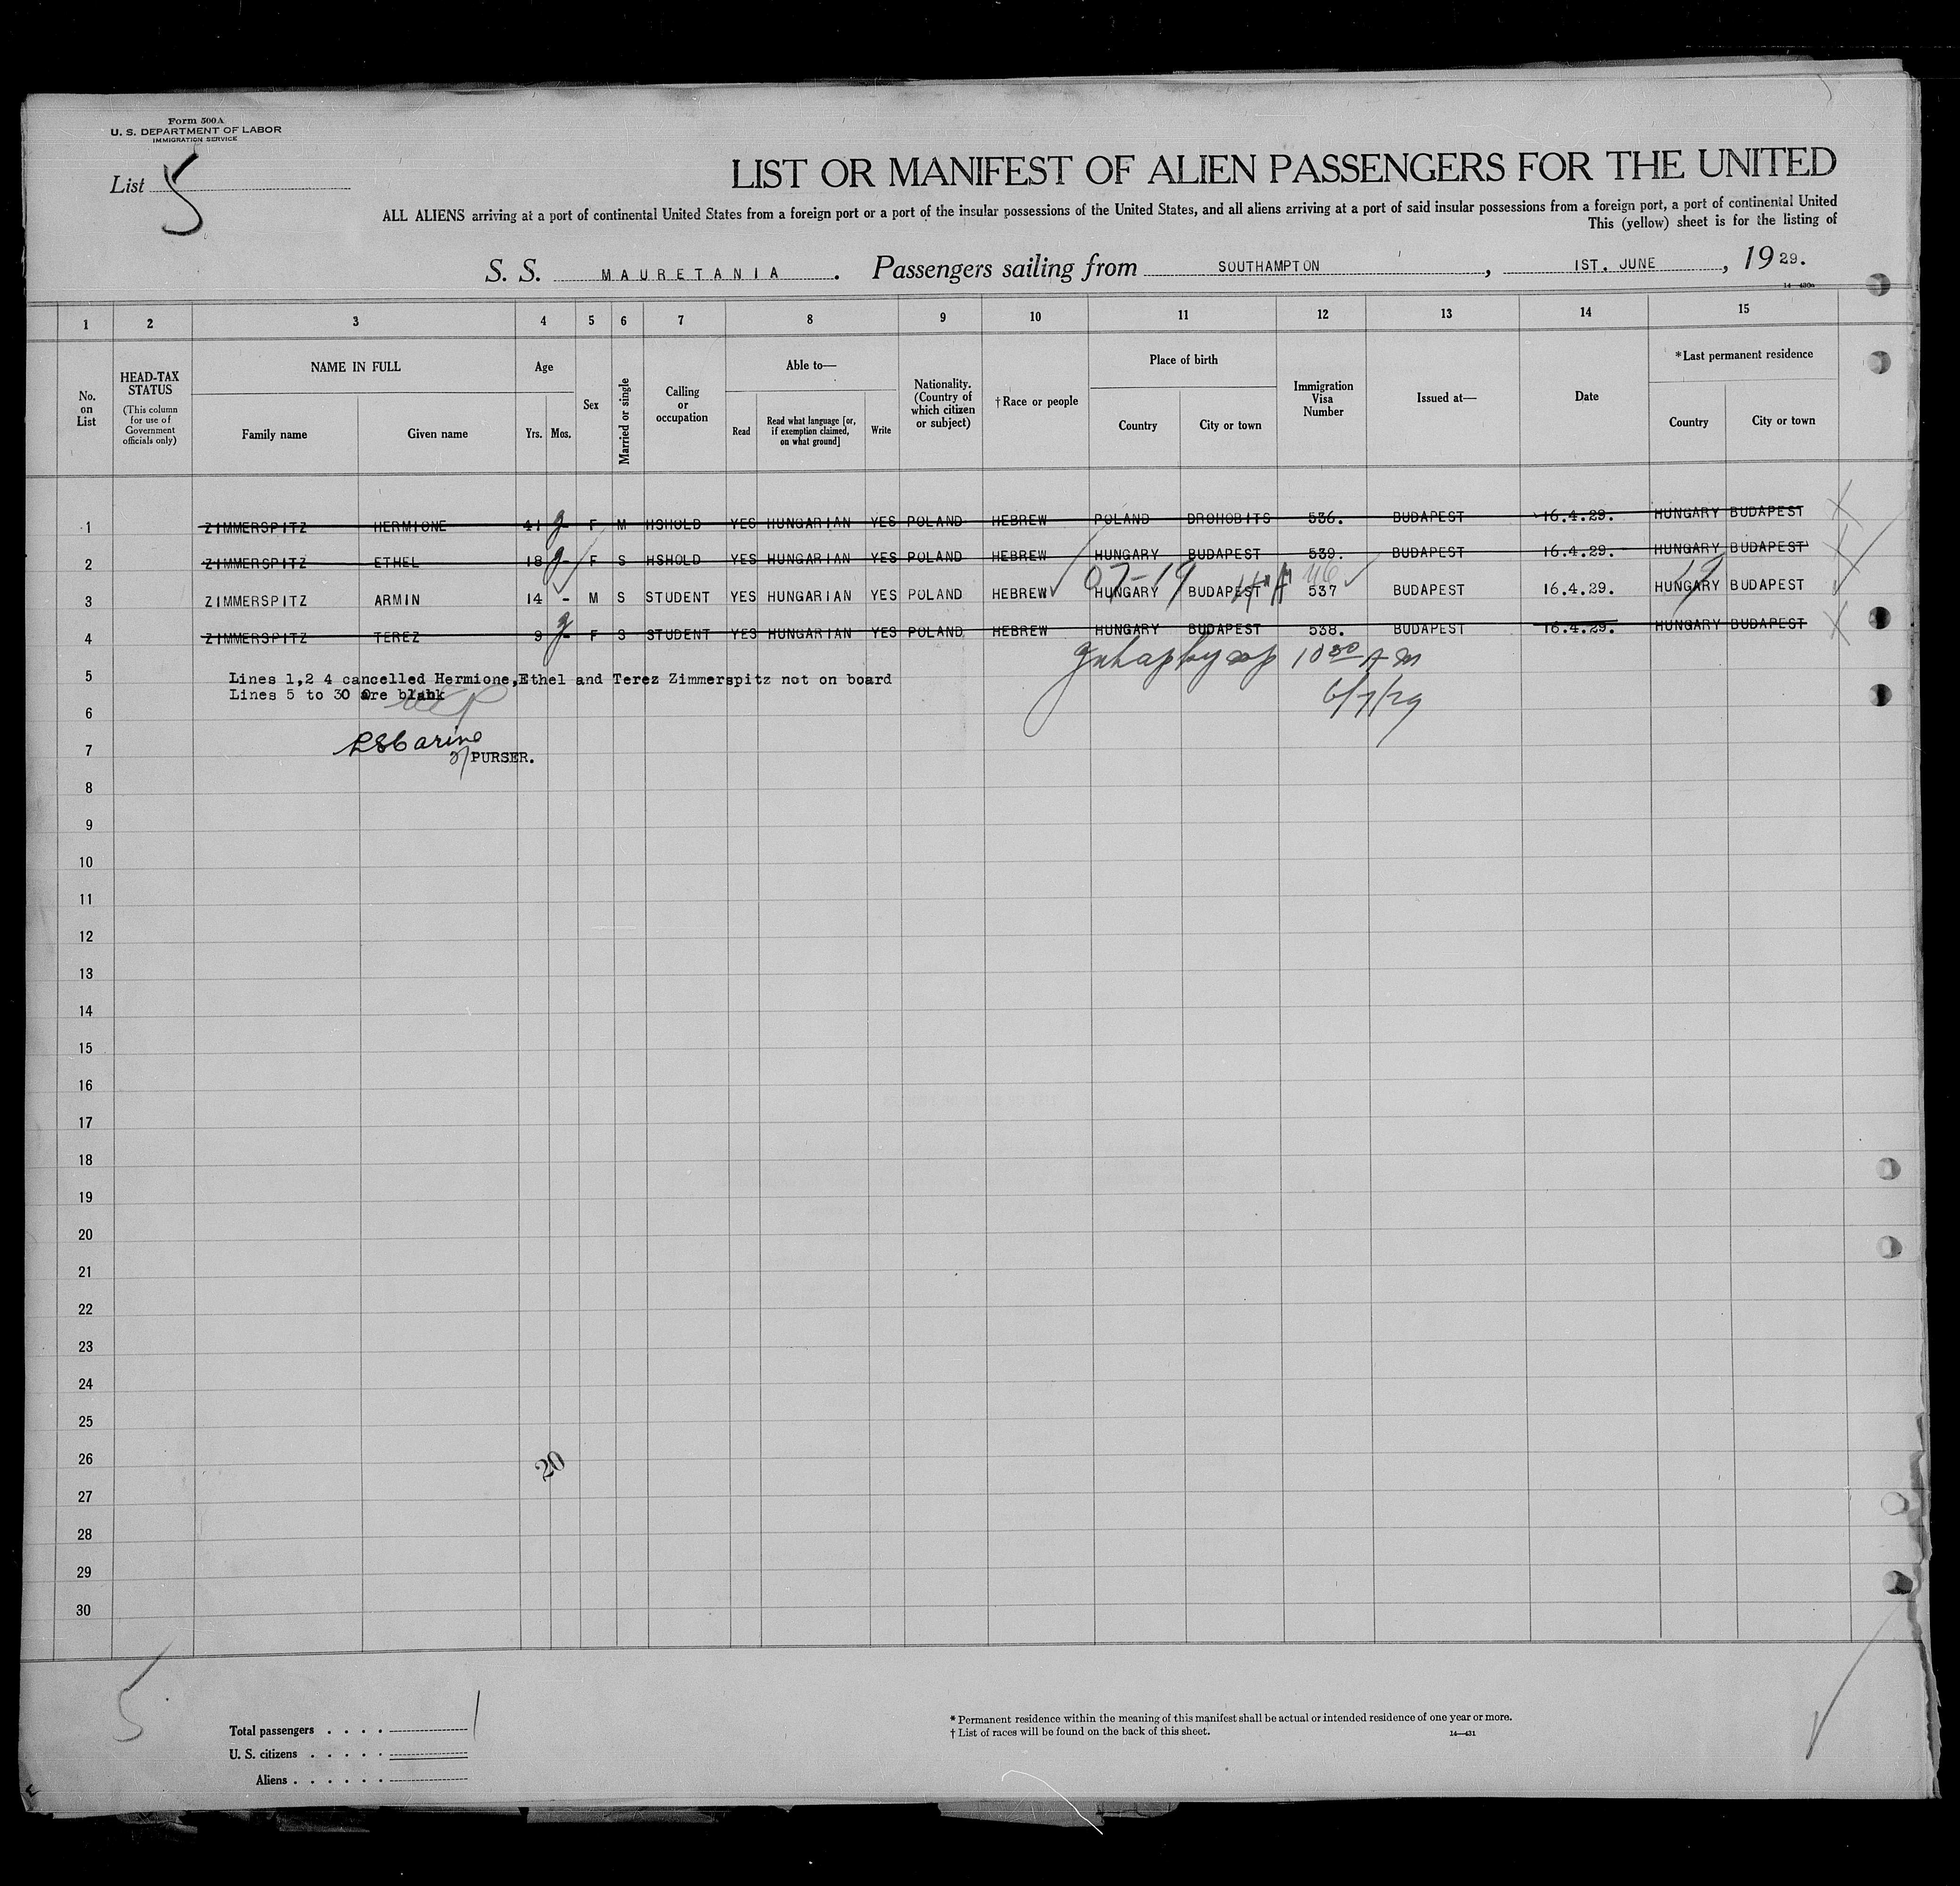 Form 500A
U. S. DEPARTMENT OF LABOR
IMMIGRATION SERVICE
List 5
LIST OR MANIFEST OF ALIEN PASSENGERS FOR THE UNITED
ALL ALIENS arriving at a port of continental United States from a foreign port or a port of the insular possessions of the United States, and all aliens arriving at a port of said insular possessions from a foreign port, a port of continental United
This (yellow) sheet is for the listing of
S. S. MAURETANIA. Passengers sailing from SOUTHAMPTON, 1ST. JUNE, 1929.
14—430a
1 2 3 4 5 6 7 8 9 10 11 12 13 14 15
No. on List
HEAD-TAX STATUS
(This column for use of Government officials only)
NAME IN FULL
Family name Given name
Age
Yrs. Mos.
Sex
Married or single
Calling or occupation
Able to—
Read
Read what language [or, if exemption claimed, on what ground]
Write
Nationality. (Country of which citizen or subject)
†Race or people
Place of birth
Country City or town
Immigration Visa Number
Issued at—
Date
*Last permanent residence
Country City or town
1 ZIMMERSPITZ HERMIONE 41 - F M HSHOLD YES HUNGARIAN YES POLAND HEBREW POLAND DROHOBITS 536. BUDAPEST 16.4.29. HUNGARY BUDAPEST
2 ZIMMERSPITZ ETHEL 18 - F S HSHOLD YES HUNGARIAN YES POLAND HEBREW HUNGARY BUDAPEST 539. BUDAPEST 16.4.29. HUNGARY BUDAPEST
07-19
3 ZIMMERSPITZ ARMIN 14 - M S STUDENT YES HUNGARIAN YES POLAND HEBREW HUNGARY BUDAPEST 537 BUDAPEST 16.4.29. HUNGARY BUDAPEST
4 ZIMMERSPITZ TEREZ 9 - F S STUDENT YES HUNGARIAN YES POLAND HEBREW HUNGARY BUDAPEST 538. BUDAPEST 16.4.29. HUNGARY BUDAPEST
10 30 A M
6/7/29
5
Lines 1,2 4 cancelled Hermione,Ethel and Terez Zimmerspitz not on board
Lines 5 to 30 are blank
6
7
PURSER.
8
9
10
11
12
13
14
15
16
17
18
19
20
21
22
23
24
25
26
20
27
28
29
30
5
Total passengers . . . . 1
U. S. citizens . . . . .
Aliens . . . . . .
* Permanent residence within the meaning of this manifest shall be actual or intended residence of one year or more.
† List of races will be found on the back of this sheet.
14—431